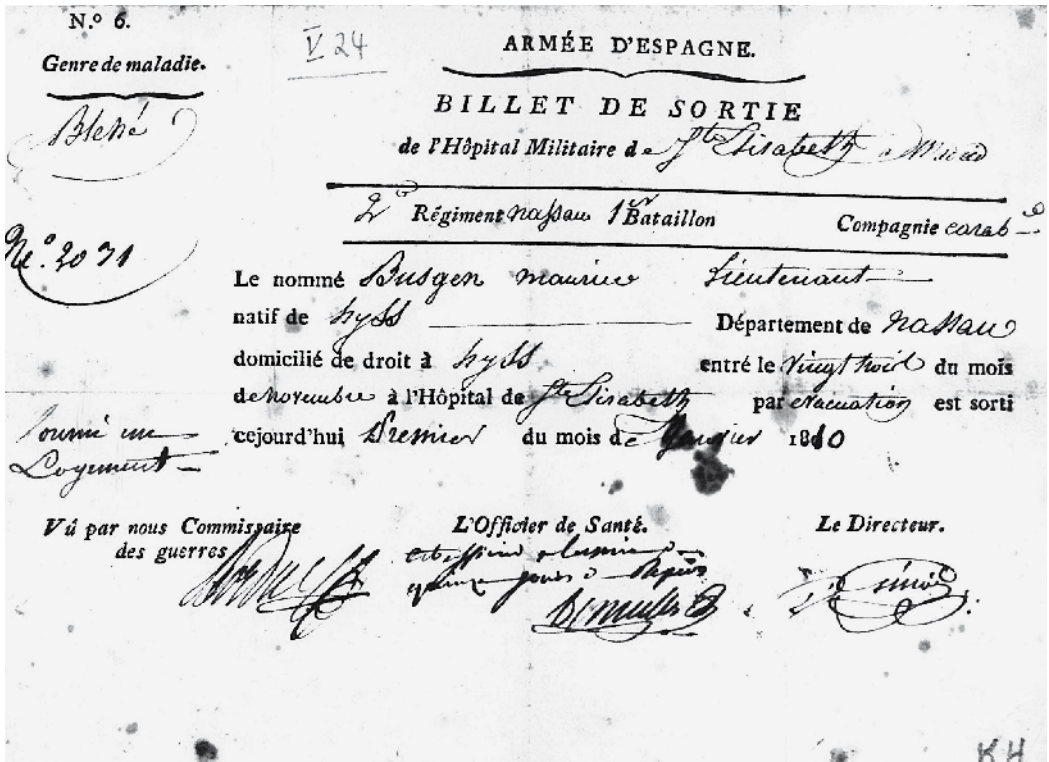 N.º 6.
V 24
Genre de maladie.
Blessé
ARMÉE D'ESPAGNE.
BILLET DE SORTIE
de l'Hôpital Militaire de Ste Elisabeth a
2e Régiment nassau 1er Bataillon Compagnie carab
Nº. 2071
Le nommé Busgen maurice Lieutenant
natif de Département de nassau
domicilié de droit à entré le vingt trois du mois
de novembre à l'Hôpital de Ste Elisabeth par evacuation est sorti
cejourd'hui Premier du mois de Janvier 1810
fourni un
Logement
Vû par nous Commissaire
des guerres
L'Officier de Santé.
quinze jours
Le Directeur.
KH